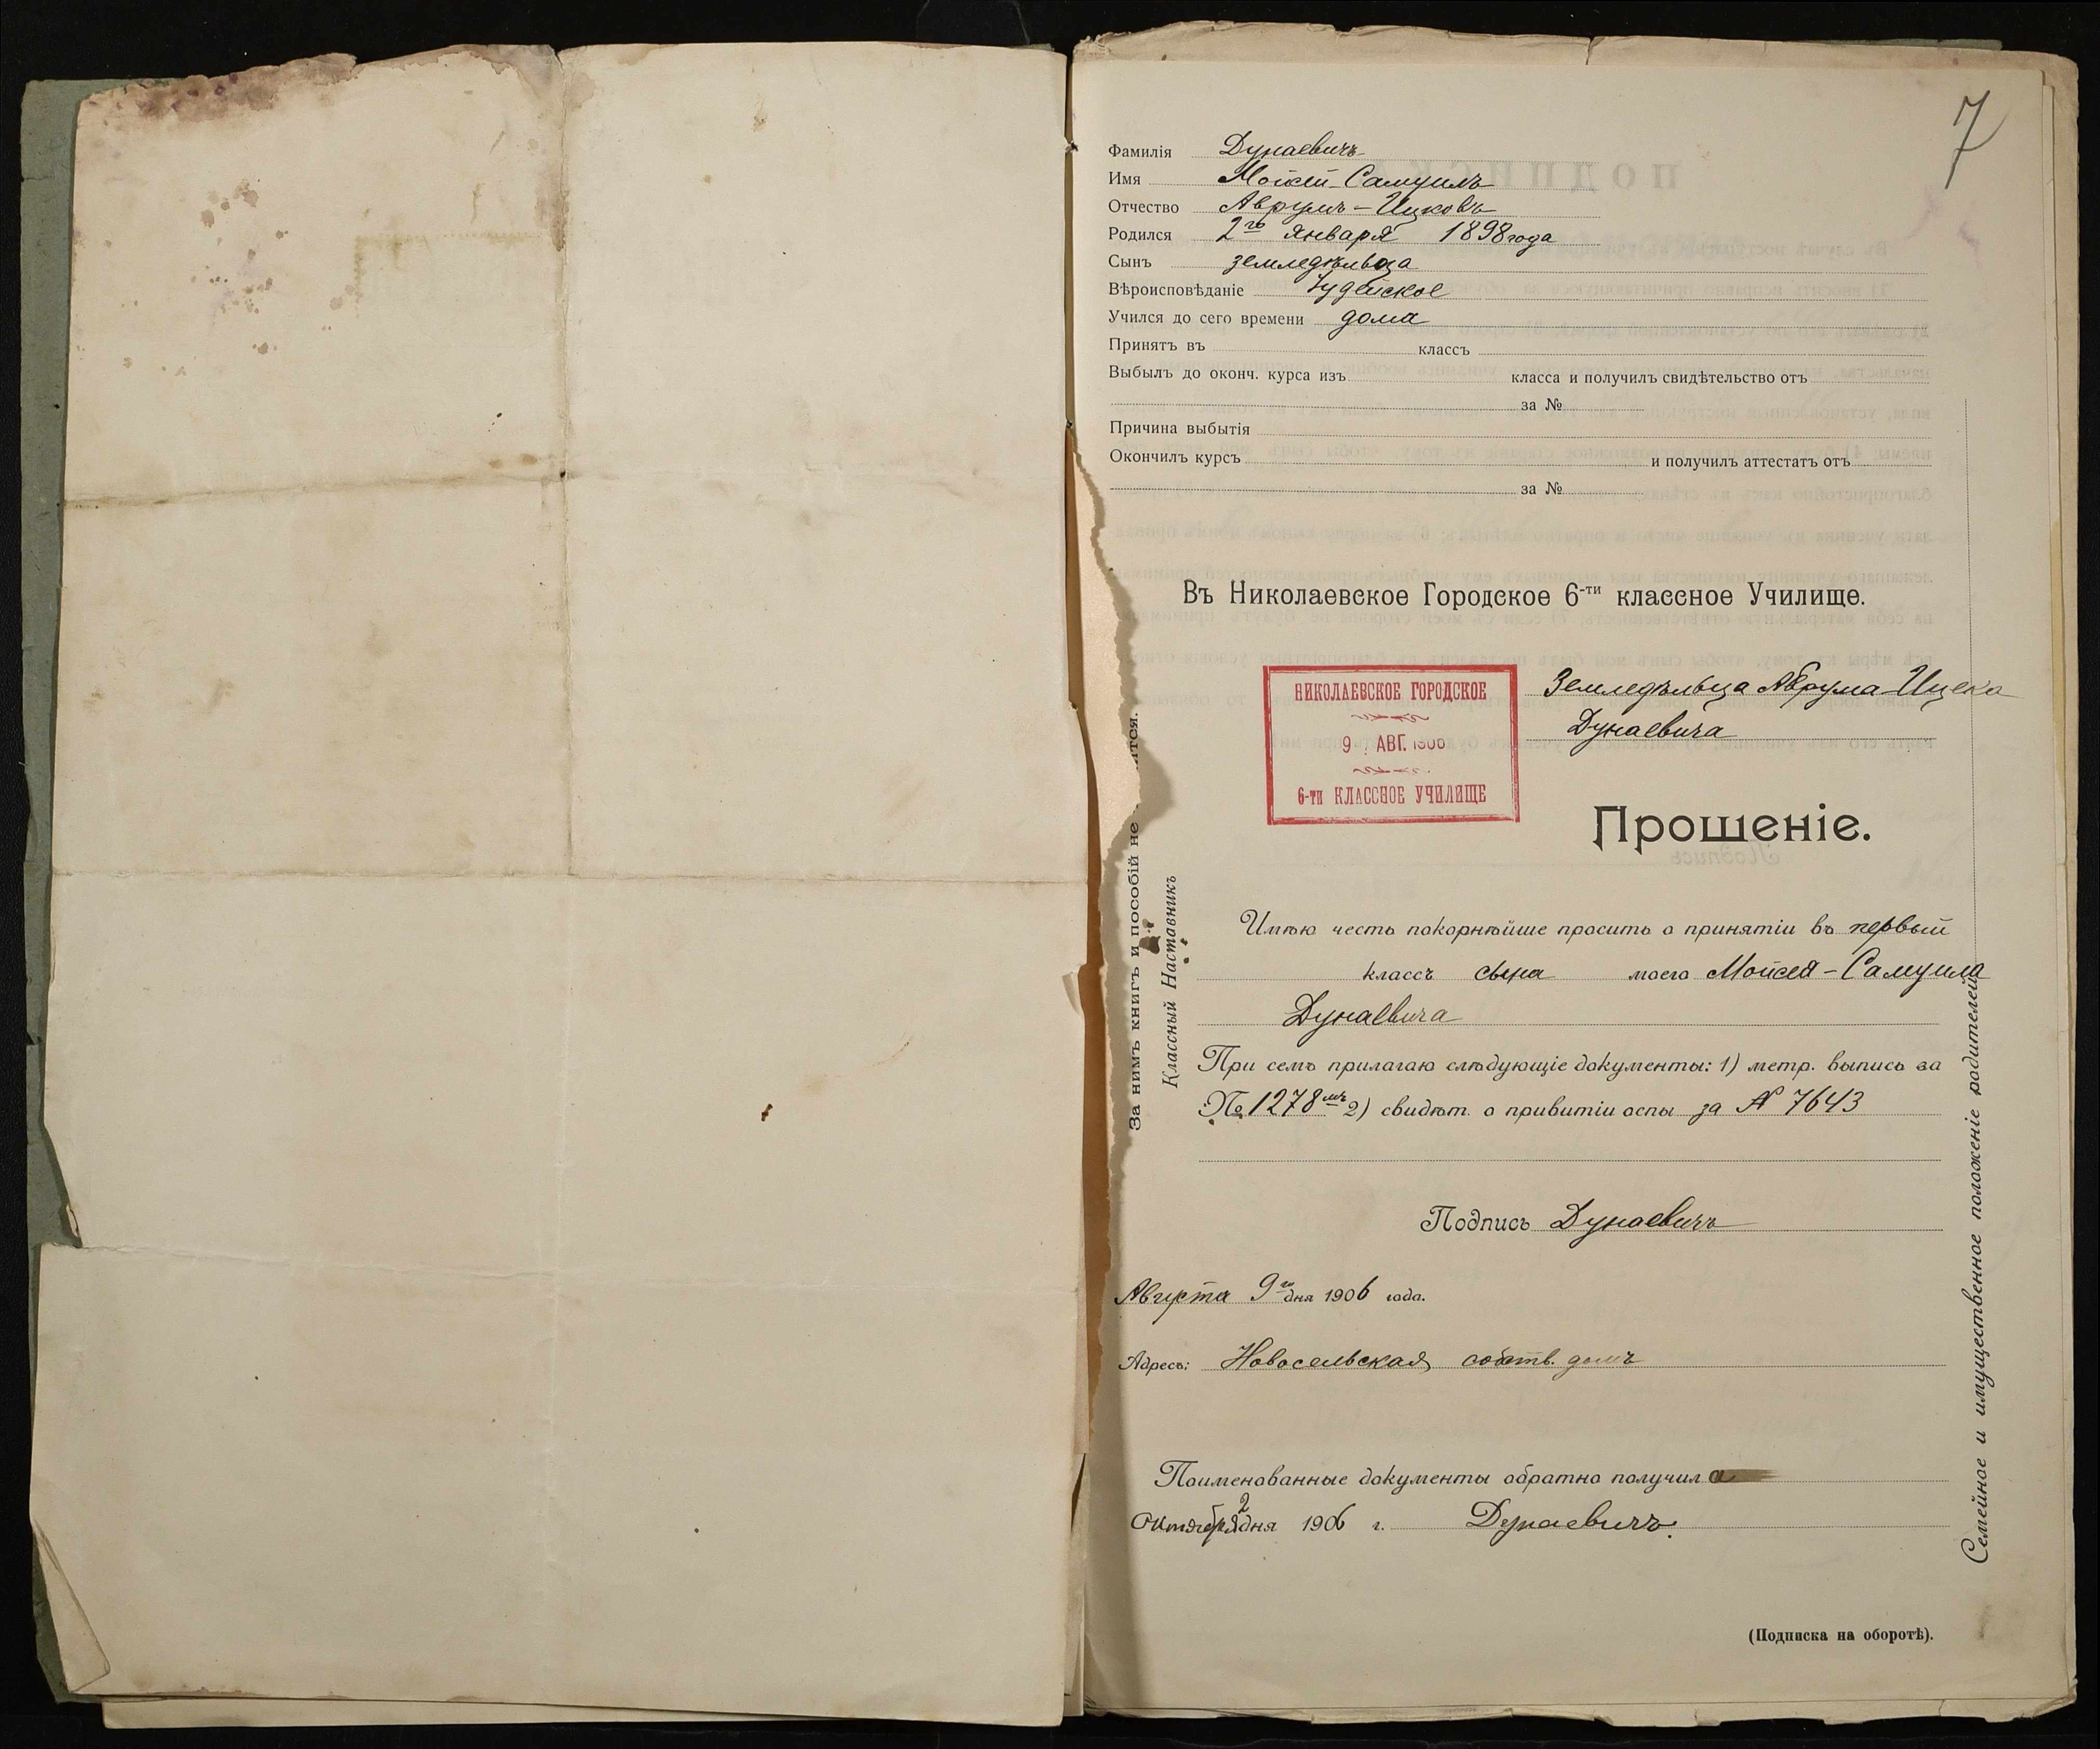 7
Фамилія Дунаевичъ
Имя Мойсей-Самуилъ
Отчество Аврумъ-Ицковъ
Родился 2го Января 1898 года
Сынъ земледѣльца
Вѣроисповѣданіе Іудейское
Учился до сего времени дома
Принятъ въ классъ
Выбылъ до оконч. курса изъ класса и получилъ свидѣтельство отъ
за №
Причина выбытія
Окончилъ курсъ и получилъ аттестатъ отъ
за №
Въ Николаевское Городское 6-ти классное Училище.
НИКОЛАЕВСКОЕ ГОРОДСКОЕ
9 АВГ. 1906
6-ти КЛАССНОЕ УЧИЛИЩЕ
Земледѣльца Аврума-Ицека
Дунаевича
Прошеніе.
Имѣю честь покорнѣйше просить о принятіи въ первый
классъ сына моего Мойсея-Самуила
Дунаевича
При семъ прилагаю слѣдующіе документы: 1) метр. выпись за
№ 1278мъ 2) свидѣт. о привитіи оспы за № 7643
Подпись Дунаевичъ
Августа 9го дня 1906 года.
Адресъ: Новосельская, собств. домъ
Поименованные документы обратно получила
Октября 2 дня 1906 г. Дунаевичъ.
(Подписка на оборотѣ).
За нимъ книгъ и пособій не
Классный Наставникъ
Семейное и имущественное положеніе родителей